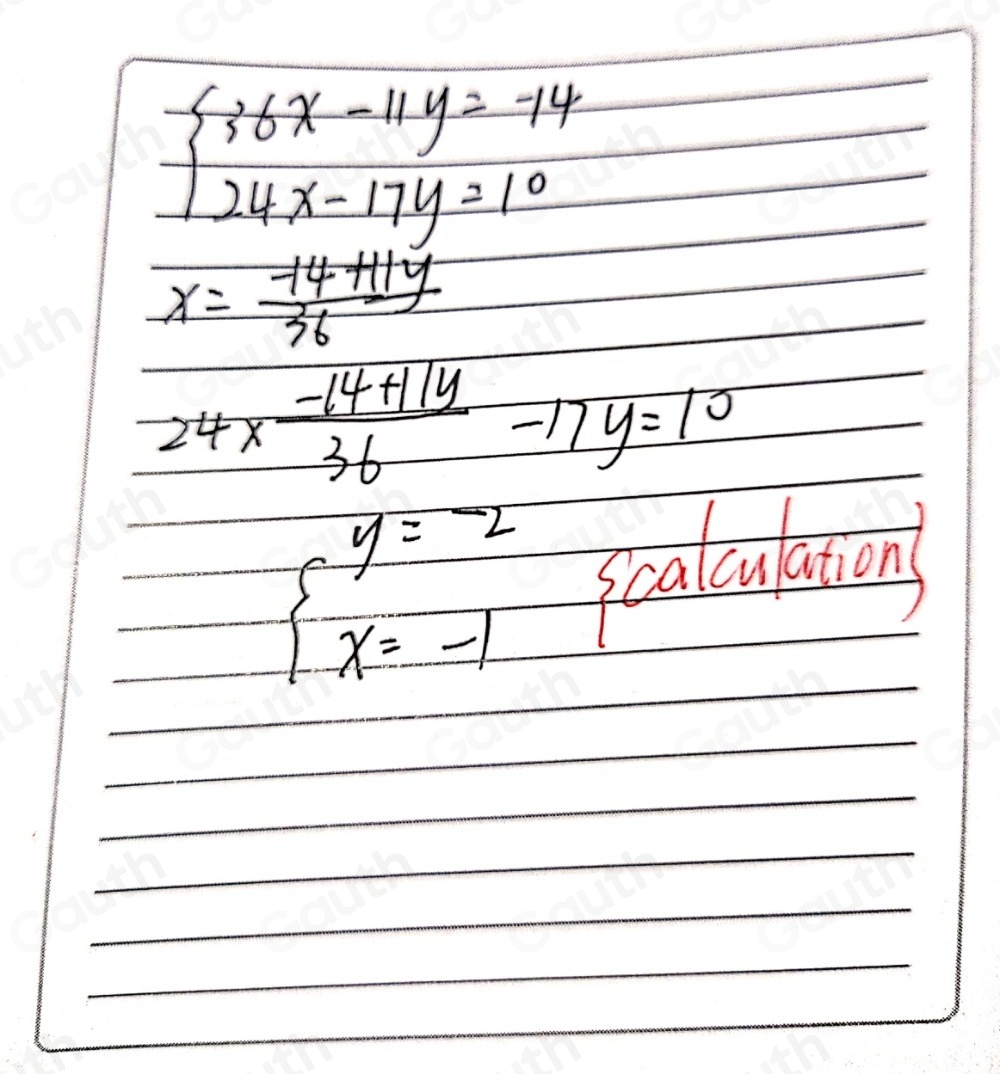 {36x - 11y = -14
24x - 17y = 10
x = \frac{-14+11y}{36}
24 × \frac{-14+11y}{36} - 17y = 10
{y = -2
x = -1
{calculation}
Gauth